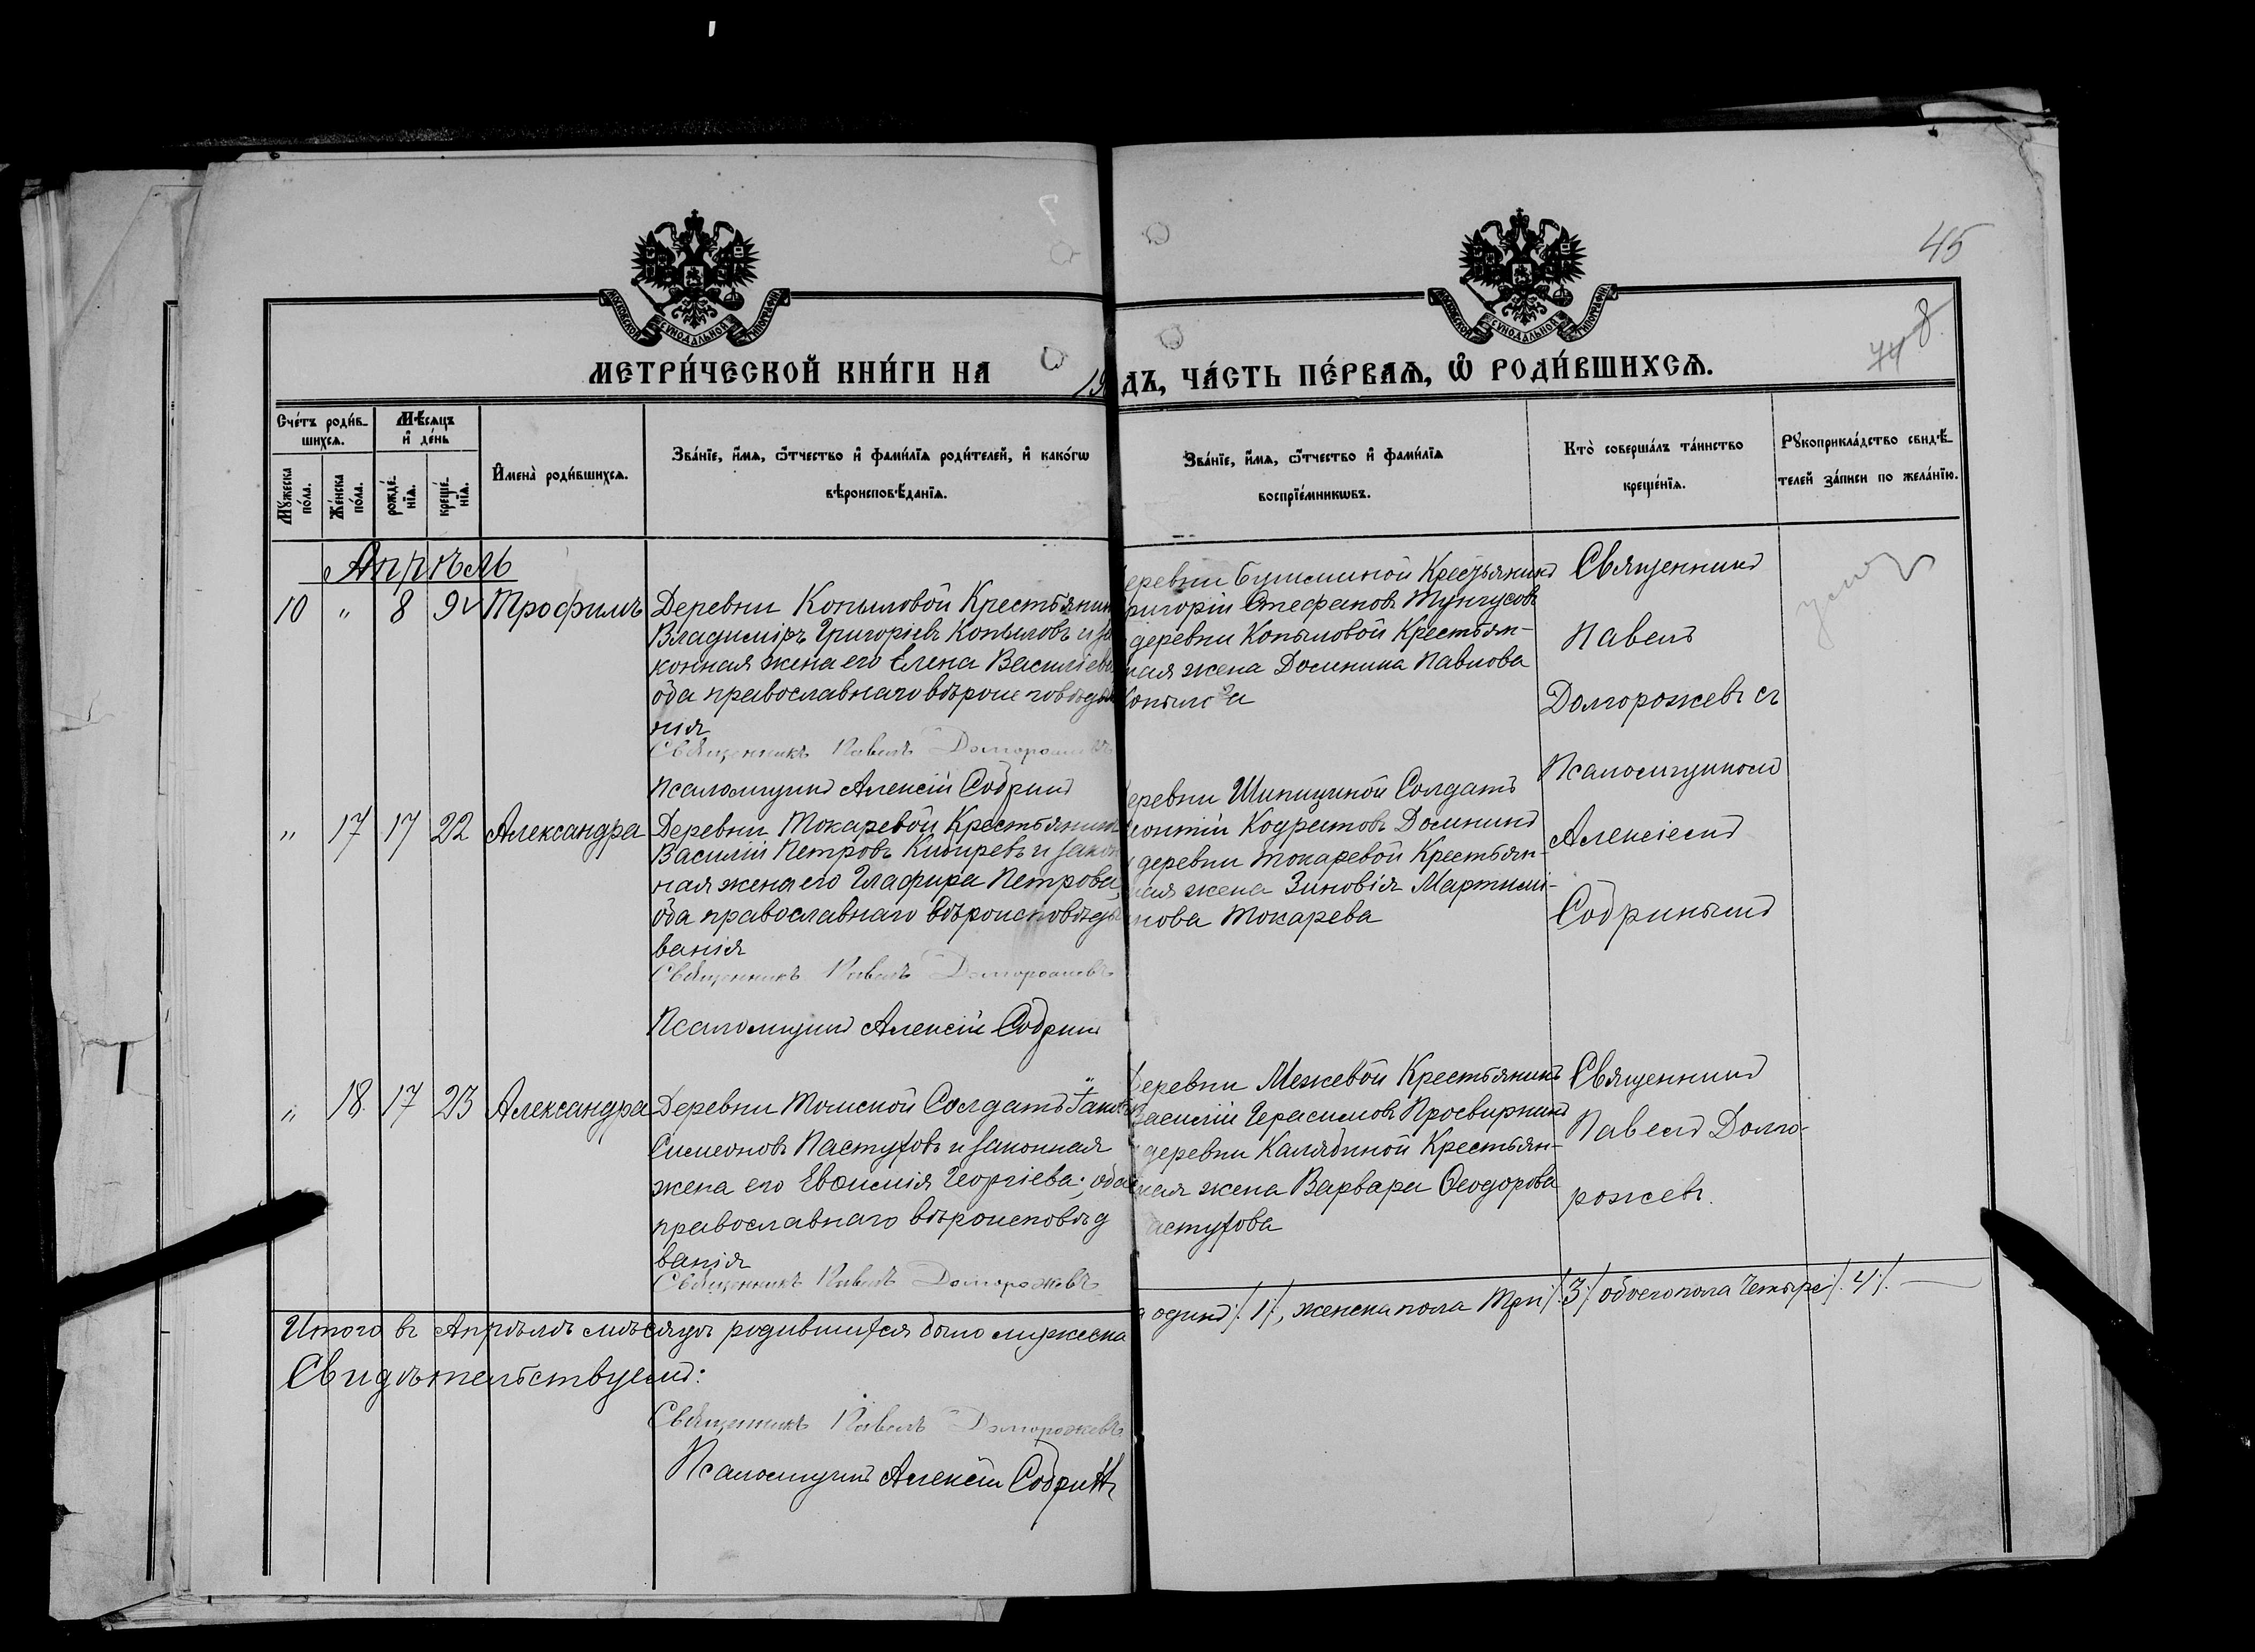 45
8
74
МОСКОВСКОЙ СѴНОДАЛЬНОЙ ТИПОГРАФІИ
МОСКОВСКОЙ СѴНОДАЛЬНОЙ ТИПОГРАФІИ
МЕТРИ́ЧЕСКОЙ КНИ́ГИ НА 19
ДЪ, ЧА́СТЬ ПЕ́РВАѦ, Ѿ РОДИ́ВШИХСѦ.
Сче́тъ роди́в-
шихсѧ.
Мѣ́сѧцъ
и҆ де́нь
Мꙋ́жеска по́ла.
Же́нска по́ла.
рожде́-
нїѧ.
креще́-
нїѧ.
И҆мена̀ роди́вшихсѧ.
Зва́нїе, и҆́мѧ, ѻ҆́тчество и҆ фами́лїѧ роди́телей, и҆ како́гѡ
вѣроисповѣ́данїѧ.
Зва́нїе, и҆́мѧ, ѻ҆́тчество и҆ фами́лїѧ
воспрїе́мникѡвъ.
Кто̀ соверша́лъ та́инство
креще́нїѧ.
Рꙋкоприкла́дство свидѣ́-
телей за́писи по жела́нїю.
Апрѣль
10 " 8 9 Трофимъ
Деревни Копыловой Крестьянин
Владиміръ Григоріевъ Копыловъ и за
конная жена его Елена Василіева
оба православнаго вѣроисповѣды
нія
Священникъ Павелъ Доморожевъ
Псаломщикъ Алексій Собринъ
еревни Крестьянинъ
ригорій Стефановъ Тунгусовъ
деревни Копыловой Крестьян-
ная жена Домника Павлова
опылова
Священникъ
Павелъ
Долгорожевъ съ
Псаломщикомъ
Алексіемъ
Собринымъ
" 17 17 22 Александра
Деревни Токаревой Крестьянинъ
Василій Петровъ Кибиревъ и закон
ная жена его Глафира Петрова,
оба православнаго вѣроисповѣды
ванія
Священникъ Павелъ Доморожевъ
Псаломщикъ Алексій Собринъ
еревни Шипицыной Солдатъ
еонтій Кодратовъ Домнинъ
деревни Токаревой Крестьян-
ная жена Зиновія Мартимі-
нова Токарева
" 18. 17 23 Александра
Деревни Томской Солдатъ Іаковъ
Симеоновъ Пастуховъ и законная
жена его Евѳимія Георгіева; оба
православнаго вѣроисповѣд
ванія
Священникъ Павелъ Доморожевъ
еревни Межевой Крестьянинъ
Василій Герасимовъ Просвирнинъ
деревни Калядиной Крестьян-
ная жена Варвара Ѳеодорова
астухова
Священникъ
Павелъ Долго-
рожевъ.
Итого въ Апрѣлѣ мѣсяцѣ родившихся было мужеска
а одинъ /.1/., женска пола три /.3/. обоего пола четыре /.4/.
Свидѣтельствуемъ:
Священникъ Павелъ Доморожевъ
Псаломщикъ Алексій Собринъ